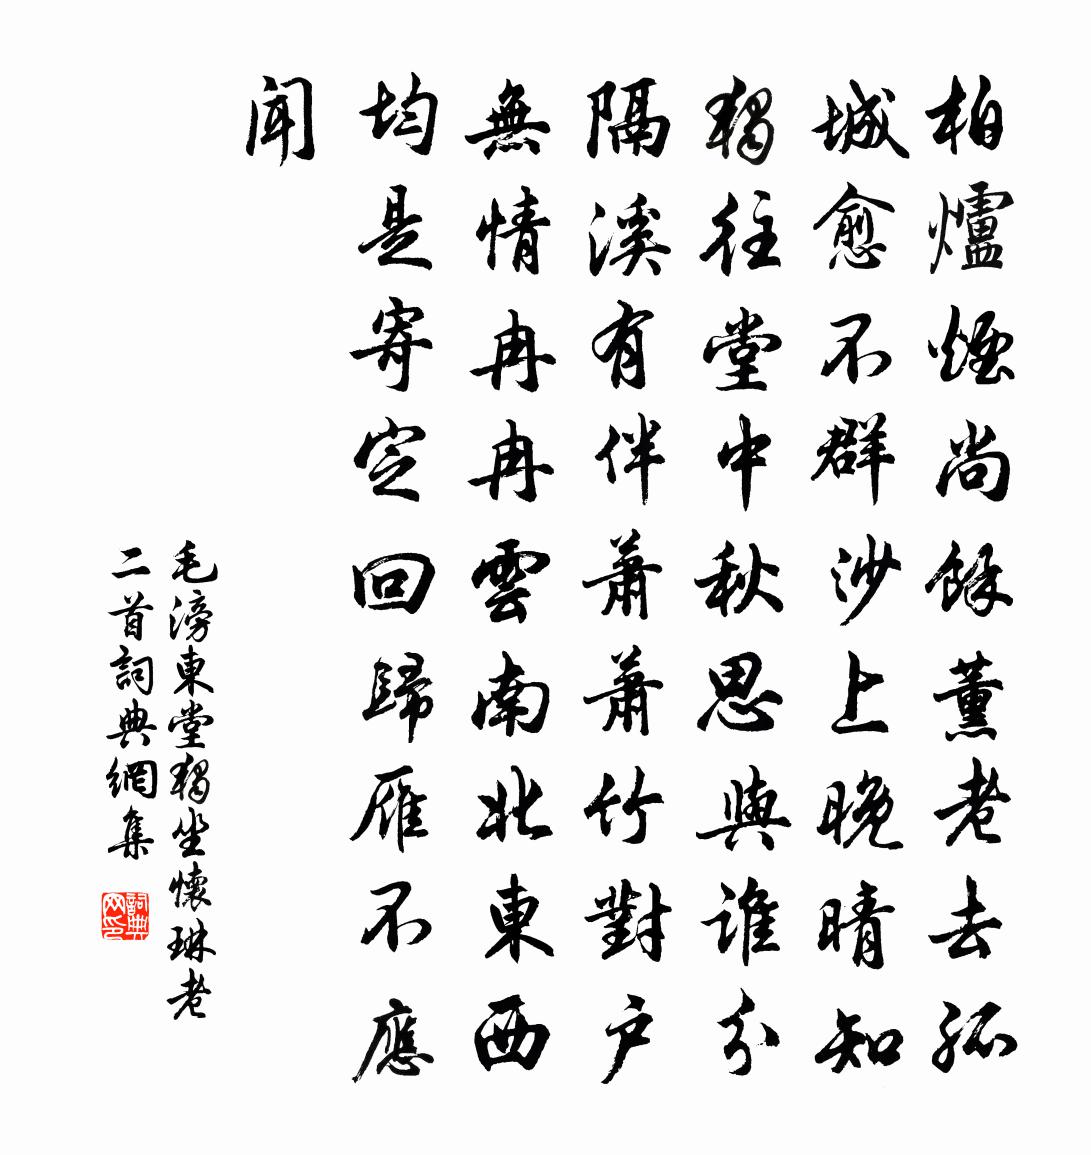 柏爐煙尚餘薰老去孤
城愈不群沙上晚晴知
獨往堂中秋思與誰分
隔溪有伴蕭蕭竹對户
無情冉冉雲南北東西
均是寄定回歸雁不應
聞
毛滂東堂獨坐懷琳老
二首詞典網集
詞典
网印